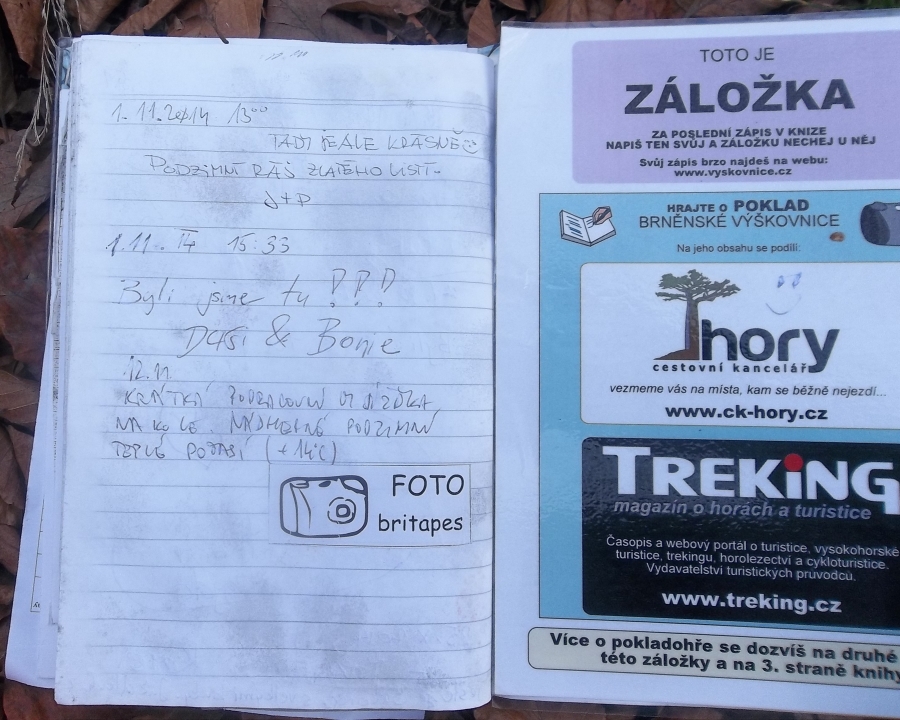 1.11.2014 13⁰⁰
TADY JE ALE KRÁSNĚ
PODZIMNÍ RÁJ ZLATÉHO LISTÍ.
J+P
1.11.14 15:33
Byli jsme tu !!!
& Bonie
12.11
KRÁTKÁ
NA KOLE. NÁDHERNÉ PODZIMNÍ
TEPLÉ POČASÍ (+14°C)
FOTO
britapes
TOTO JE
ZÁLOŽKA
ZA POSLEDNÍ ZÁPIS V KNIZE
NAPIŠ TEN SVŮJ A ZÁLOŽKU NECHEJ U NĚJ
Svůj zápis brzo najdeš na webu:
www.vyskovnice.cz
HRAJTE O POKLAD
BRNĚNSKÉ VÝŠKOVNICE
Na jeho obsahu se podílí:
hory
cestovní kancelář
vezmeme vás na místa, kam se běžně nejezdí...
www.ck-hory.cz
TREKiNG
magazín o horách a turistice
Časopis a webový portál o turistice, vysokohorské
turistice, trekingu, horolezectví a cykloturistice.
Vydavatelství turistických průvodců.
www.treking.cz
Více o pokladohře se dozvíš na druhé
této záložky a na 3. straně knihy